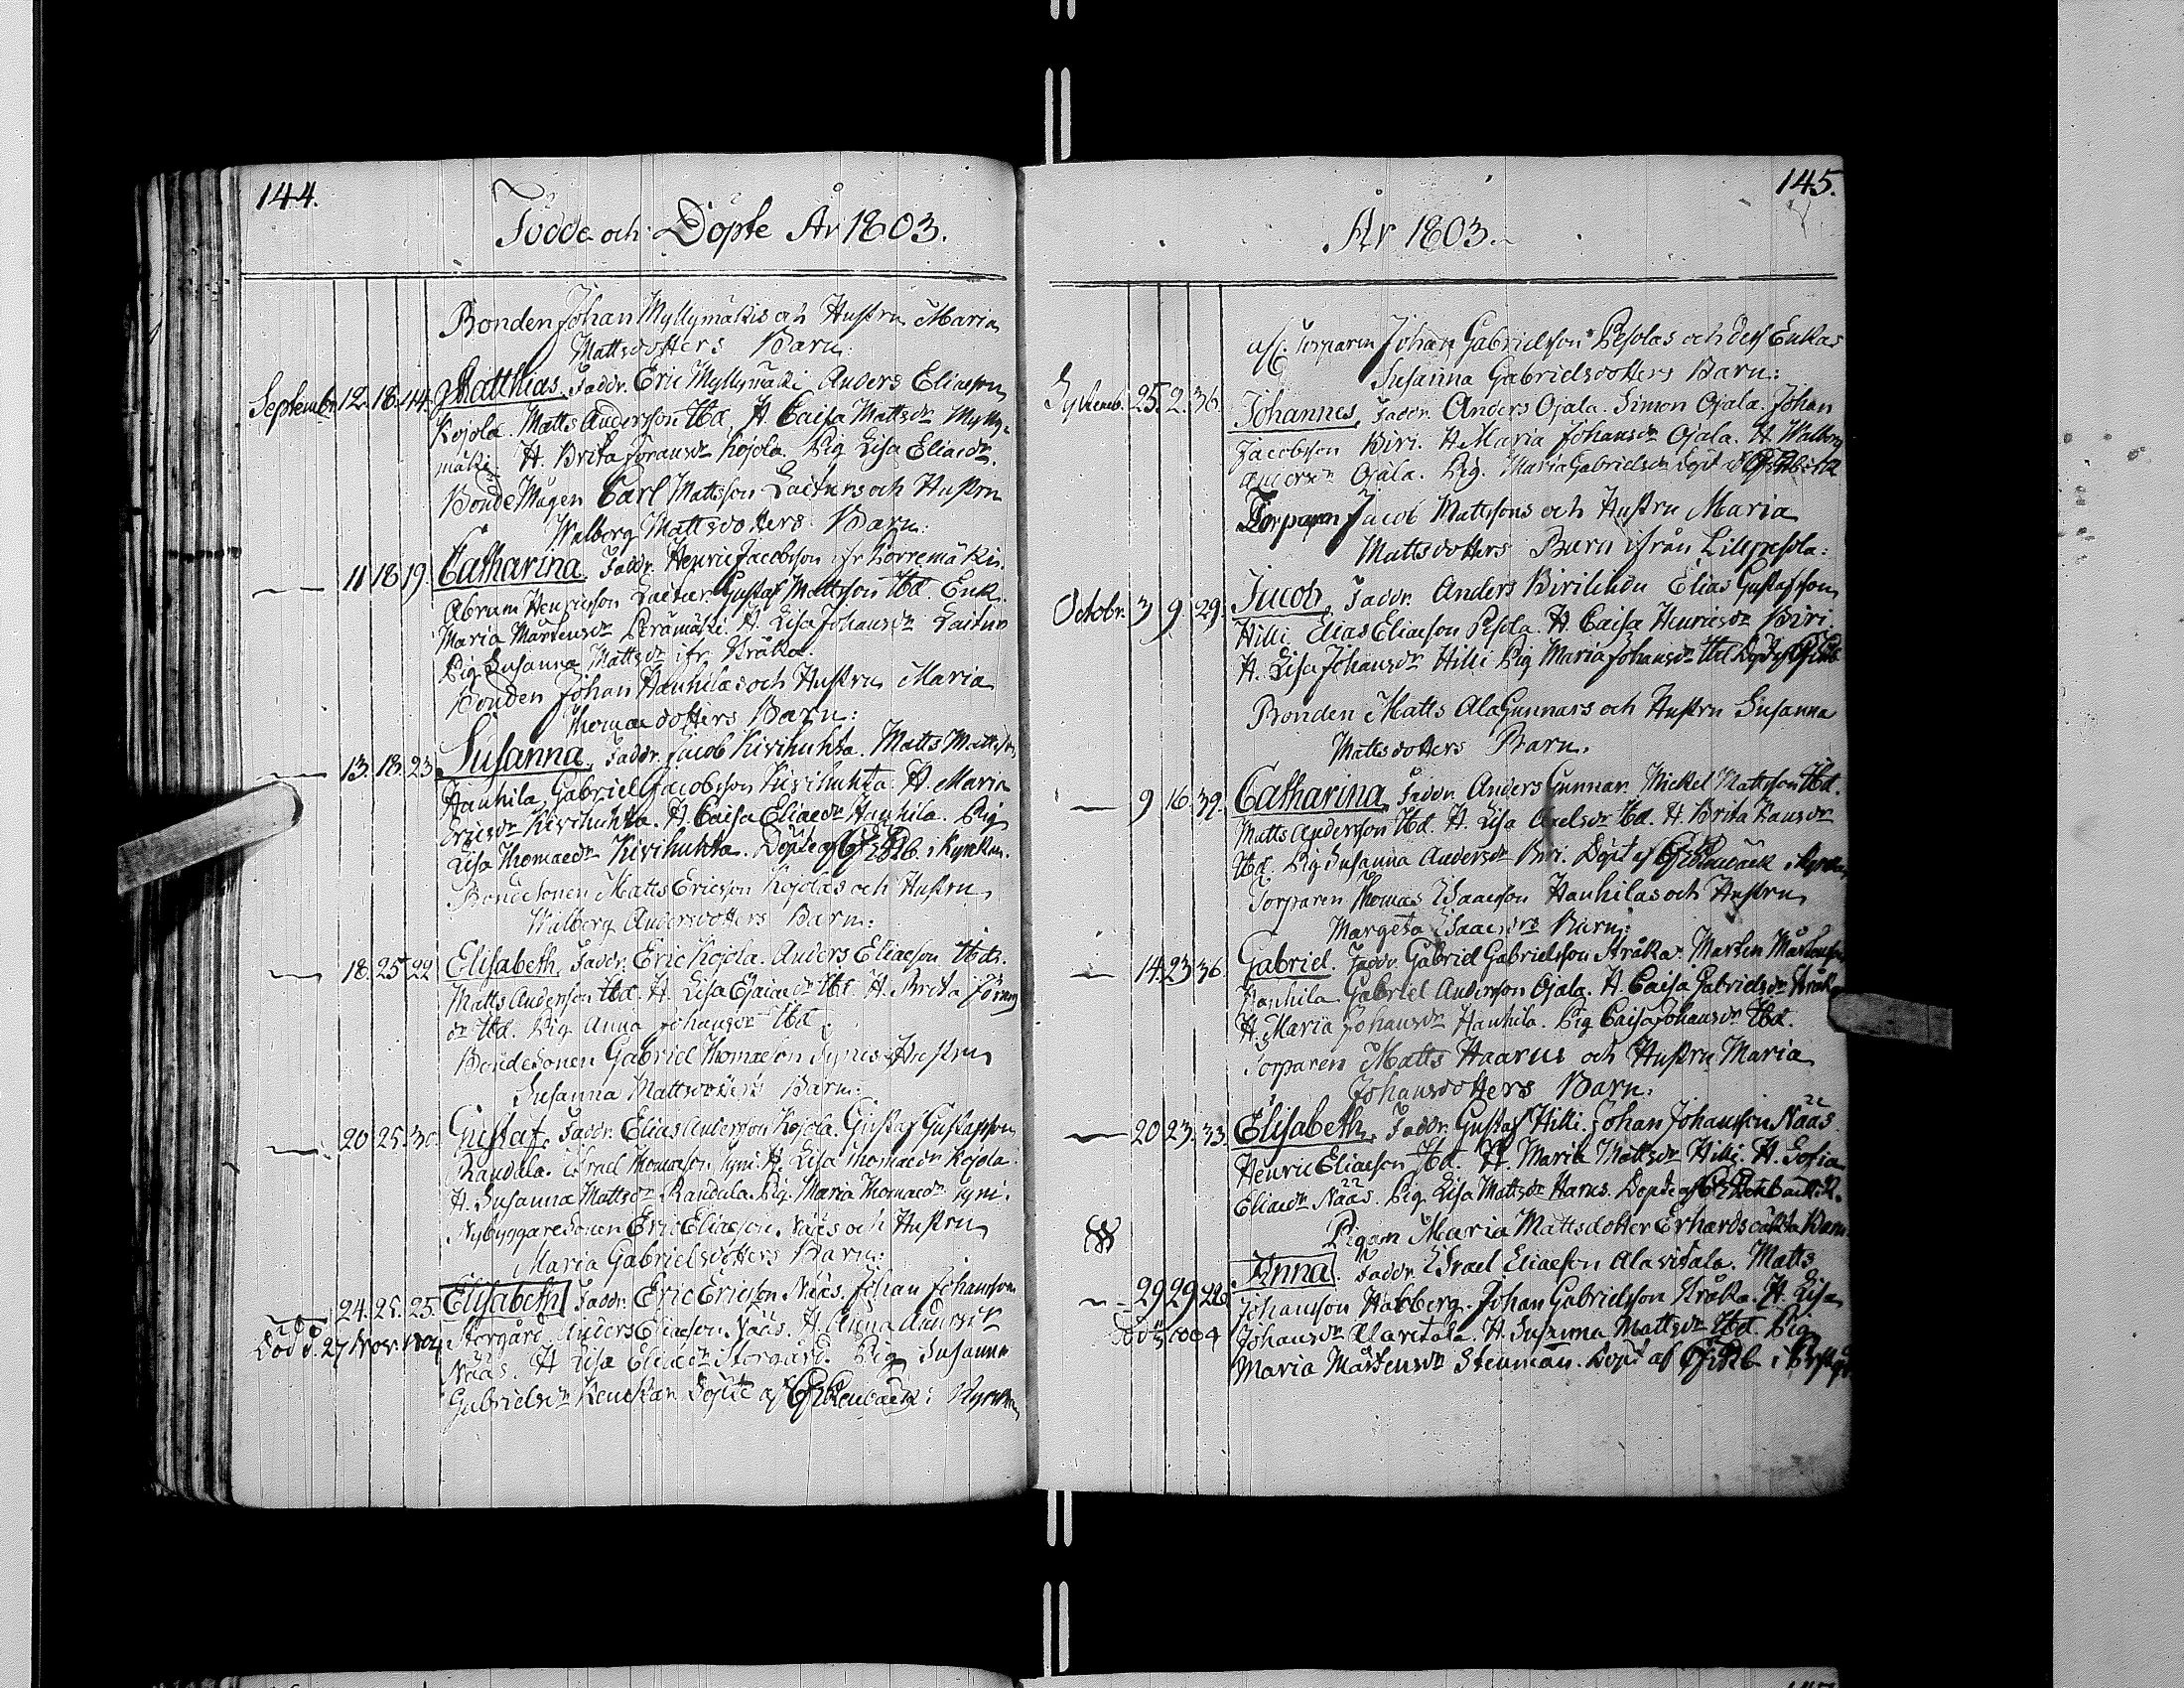 144.
Födde och Döpte År 1803.
Bonden Johan Myllymäkis och Hustru Maria
Mattsdotters Barn:
Septembr. 12. 18. 44. Matthias. Faddr. Eric Myllymäki Anders Eliaeson
Kojola. Matts Andersson Ibd. H. Caisa Mattsdr Mylly-
mäki H. Brita Joransdr Kojola. Pig. Lisa Eliaedr.
Bonde Mågen Carl Mattsson Laiturs och Hustru
Walborg Mattsdotters Barn:
11 18 19. Catharina. Faddr. Henric Jacobsson ifr
Abram Henricsson Laitur. Gustaf Mattsson Ibd. Enk.
Maria Mårtensdr Perämäki. H. Lisa Johansdr Laitur
Pig. Susanna Mattsdr ifr Kråka.
Bonden Johan Hanhilas och Hustru Maria
Thomaedotters Barn:
13. 18. 23 Susanna. Faddr. Jacob Kivihuhta. Matts Mattsson
Hanhila, Gabriel Jacobsson Kivihuhta. H. Maria
Ericsdr Kivihuhta. H. Caisa Eliaedr Hanhila. Pig
Lisa Thomaedr Kivihuhta. Döpte af i Kyrkan.
Bondesonen Matts Ericsson Kojolas och Hustru
Walborg Andersdotters Barn:
18. 25 22 Elisabeth. Faddr. Eric Kojola. Anders Eliaeson Ibd.
Matts Anderson Ibd. H. Lisa Esaiaedr Ibd. H. Brita Jörans
dr Ibd. Pig. Anna Johansdr Ibd.
Bondesonen Gabriel Thomaeson Hustru
Susanna Mattsdotters Barn:
20 25. 30. Gustaf. Faddr. Elias Andersson Kojola. Gustaf Gustafsson
Randala. Israel Thomaeson H. Lisa Thomaedr Kojola.
H. Susanna Mattsdr Randala. Pig. Maria Thomaedr
Nybyggaresonen Eric Eliaeson Nääs och Hustru
Maria Gabrielsdotters Barn:
24. 25. 25. Elisabeth Faddr. Eric Ericsson Nääs. Johan Johansson
Död d. 27 Nov. 1804 Storgård. Anders Eliaeson Nääs. H. Anna
Nääs. H Lisa Eliaedr Storgård. Pig Susanna
Gabrielsdr Döpte af i Kyrkan
145.
År 1803.
Torparen Johan Gabrielsson Pesolas och dess Enkas
Susanna Gabrielsdotters Barn:
25. 2. 36. Johannes, Faddr. Anders Ojala. Simon Ojala. Johan
Jacobsson Biri. H. Maria Johansdr Ojala. H. Walborg
Ojala. Pig. Maria Gabrielsdr
Torparen Jacob Mattssons och Hustru Maria
Mattsdotters Barn ifrån Lillpesola:
Octobr. 3 9. 29. Jacob, Faddr. Anders Elias Gustafsson
Hilli. Elias Eliaeson Pesola. H. Caisa Henricsdr Biri.
H. Lisa Johansdr Hilli Pig Maria Johansdr Ibd
Bonden Matts Ala Gunnars och Hustru Susanna
Mattsdotters Barn.
9 16. 39. Catharina. Faddr. Anders Gunnar. Mickel Mattsson Ibd.
Matts Andersson Ibd. H. Lisa Axelsdr Ibd. H. Brita Hansdr
Ibd. Pig Susanna Andersdr Biri. Döpt af
Torparen Thomas Isaacson Hanhilas och Hustru
Margeta Isaacsdrs Barn:
14. 23 36. Gabriel. Faddr. Gabriel Gabrielsson Kråka. Marten
Hanhila Gabriel Anderson Ojala. H. Caisa Gabrielsdr Kråka
H. Maria Johansdr Hanhila. Pig Caisa Johansdr Ibd.
Torparen Matts Haarus och Hustru Maria
Johansdotters Barn:
20 23. 33. Elisabeth. Faddr. Gustaf Hilli. Johan Johansson Näås.
Henric Eliaeson Ibd. H. Maria Mattsdr Hilli. H. Sofia
Eliaedr Näås. Pig. Lisa Mattsdr Harus. Döpte af
Pigan Maria Mattsdotter Erhards oäkta Barn.
29 29 Anna. Faddr. Israel Eliaeson Alavitala. Matts
Johansson Hakberg. Johan Gabrielsson Kråka. H. Lisa
Johansdr Alavitala. H. Susanna Mattsdr Ibd. Pig
Maria Mårtensdr Stenman. Döpt af